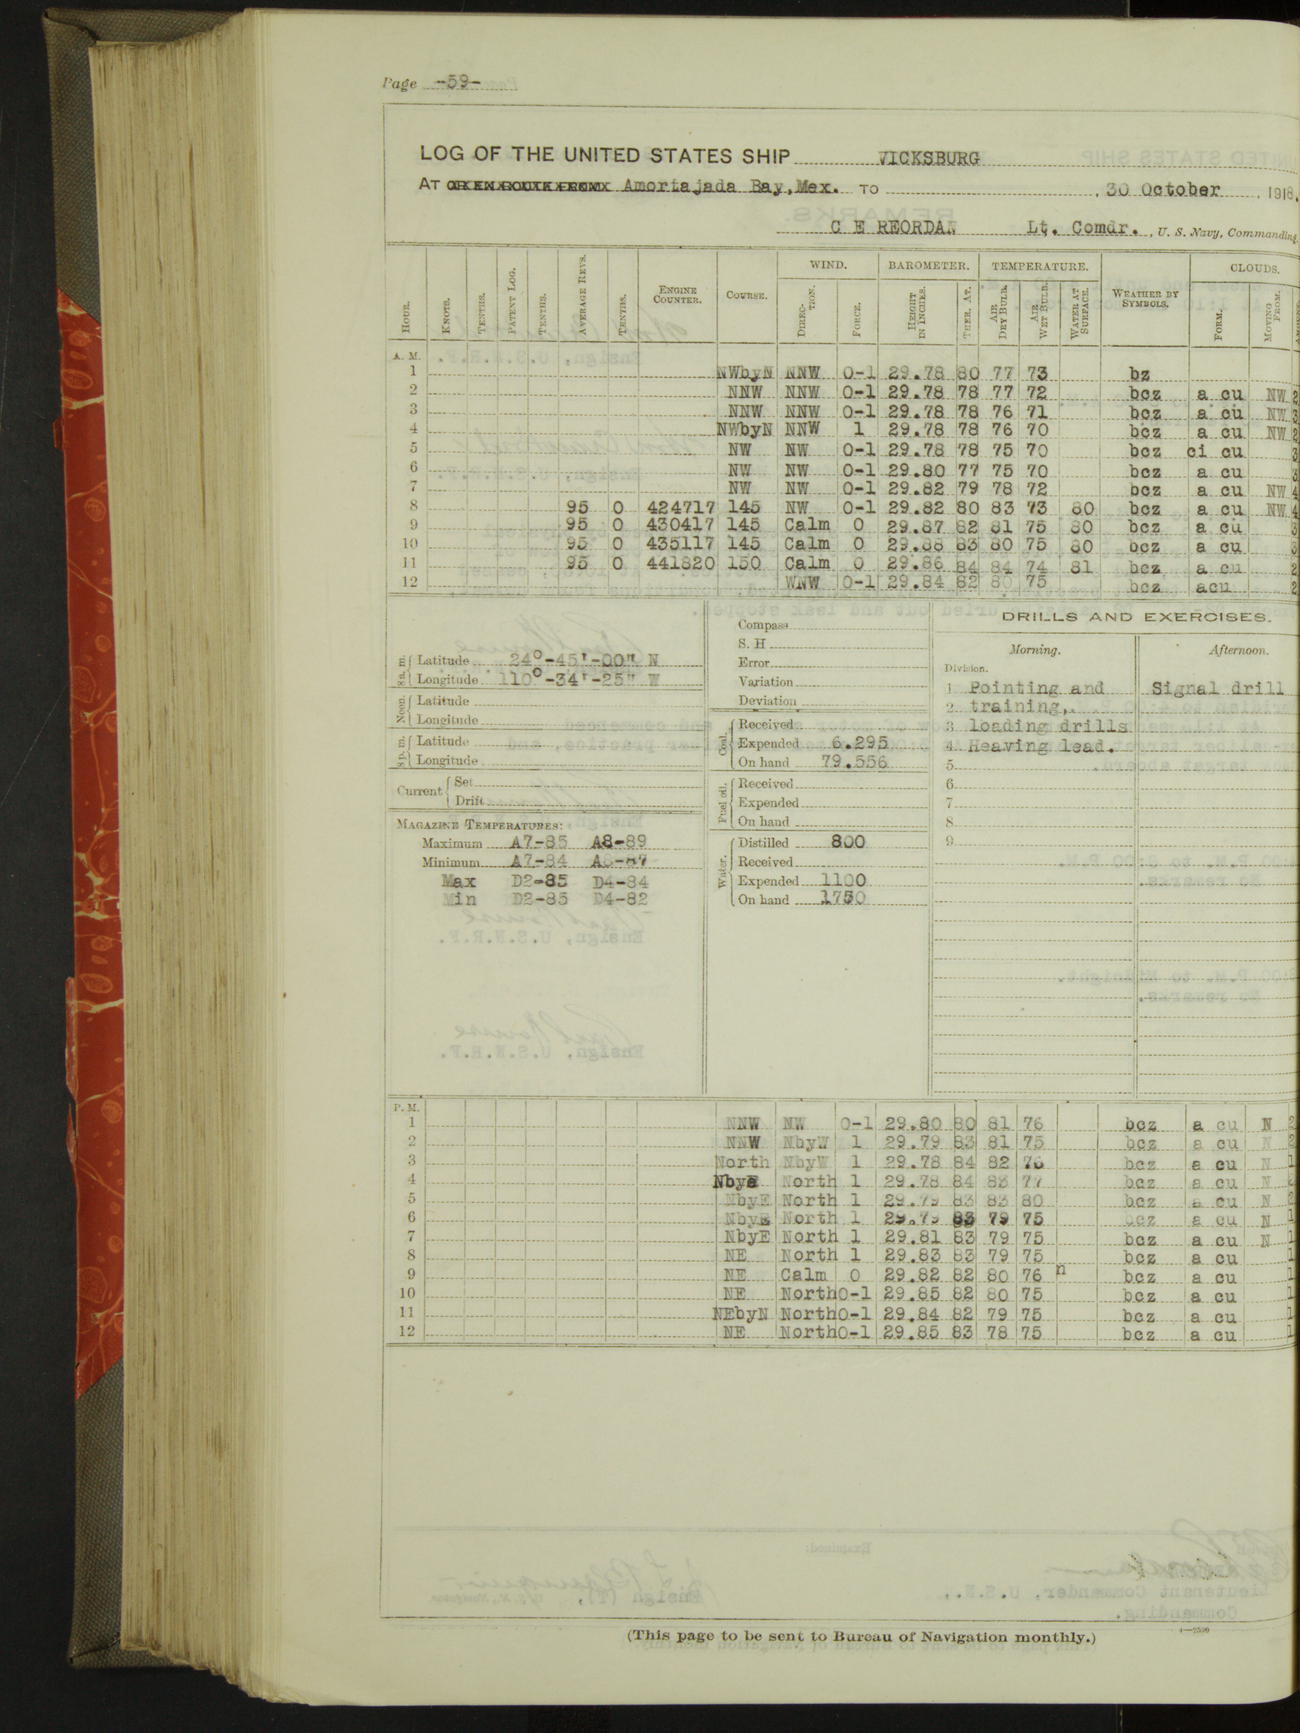 Page -59-
LOG OF THE UNITED STATES SHIP VICKSBURG
AT Amortajada Bay, Mex. TO , 30 October , 1918,
C E REORDAN Lt. Comdr. , U. S. Navy, Commanding.
WIND. BAROMETER. TEMPERATURE. CLOUDS.
HOUR. KNOTS. TENTHS. PATENT LOG. TENTHS. AVERAGE REVS. TENTHS. ENGINE COUNTER. COURSE. DIRECTION. FORCE. HEIGHT IN INCHES. THER. AT. AIR DRY BULB. AIR WET BULB. WATER AT SURFACE. WEATHER BY SYMBOLS. FORM. MOVING FROM.
A. M.
1 NWbyN NNW 0-1 29.78 80 77 73 bz
2 NNW NNW 0-1 29.78 78 77 72 bcz a cu NW 2
3 NNW NNW 0-1 29.78 78 76 71 bcz a cu NW 3
4 NWbyN NNW 1 29.78 78 76 70 bcz a cu NW 2
5 NW NW 0-1 29.78 78 75 70 bcz ci cu 3
6 NW NW 0-1 29.80 77 75 70 bcz a cu 3
7 NW NW 0-1 29.82 79 78 72 bcz a cu NW 4
8 95 0 424717 145 NW 0-1 29.82 80 83 73 80 bcz a cu NW 4
9 95 0 430417 145 Calm 0 29.87 82 81 75 80 bcz a cu 3
10 95 0 435117 145 Calm 0 29.88 83 80 75 80 bcz a cu 3
11 95 0 441820 150 Calm 0 29.86 84 84 74 81 bcz a cu 2
12 WNW 0-1 29.84 82 80 75 bcz acu 2
8 a. m. Latitude 24°-45'-00" N
Longitude 110°-34'-25" W
Noon. Latitude
Longitude
8 p. m. Latitude
Longitude
Current Set
Drift
MAGAZINE TEMPERATURES:
Maximum A7-85 A8-89
Minimum A7-84
Max D2-85 D4-84
Min D2-85 D4-82
Compass
S. H
Error
Variation
Deviation
Coal. Received
Expended 6.295
On hand 79.556
Fuel oil. Received
Expended
On hand
Water. Distilled 800
Received
Expended 1100
On hand 1750
DRILLS AND EXERCISES.
Morning. Afternoon.
Division.
1 Pointing and Signal drill
2 training,.
3 loading drills
4 Heaving lead.
5
6
7
8
9
P. M.
1 NNW NW 0-1 29.80 80 81 76 bcz a cu N 2
2 NNW NbyW 1 29.79 83 81 75 bcz a cu N 2
3 North NbyW 1 29.78 84 82 76 bcz a cu N 1
4 NbyE North 1 29.78 84 83 77 bcz a cu N
5 NbyE North 1 29.79 83 83 80 bcz a cu N 2
6 NbyE North 1 29.79 83 79 75 bcz a cu N 1
7 NbyE North 1 29.81 83 79 75 bcz a cu N 1
8 NE North 1 29.83 83 79 75 bcz a cu 1
9 NE Calm 0 29.82 82 80 76 n bcz a cu 1
10 NE North 0-1 29.85 82 80 75 bcz a cu 1
11 NEbyN North 0-1 29.84 82 79 75 bcz a cu 1
12 NE North 0-1 29.85 83 78 75 bcz a cu 1
(This page to be sent to Bureau of Navigation monthly.)